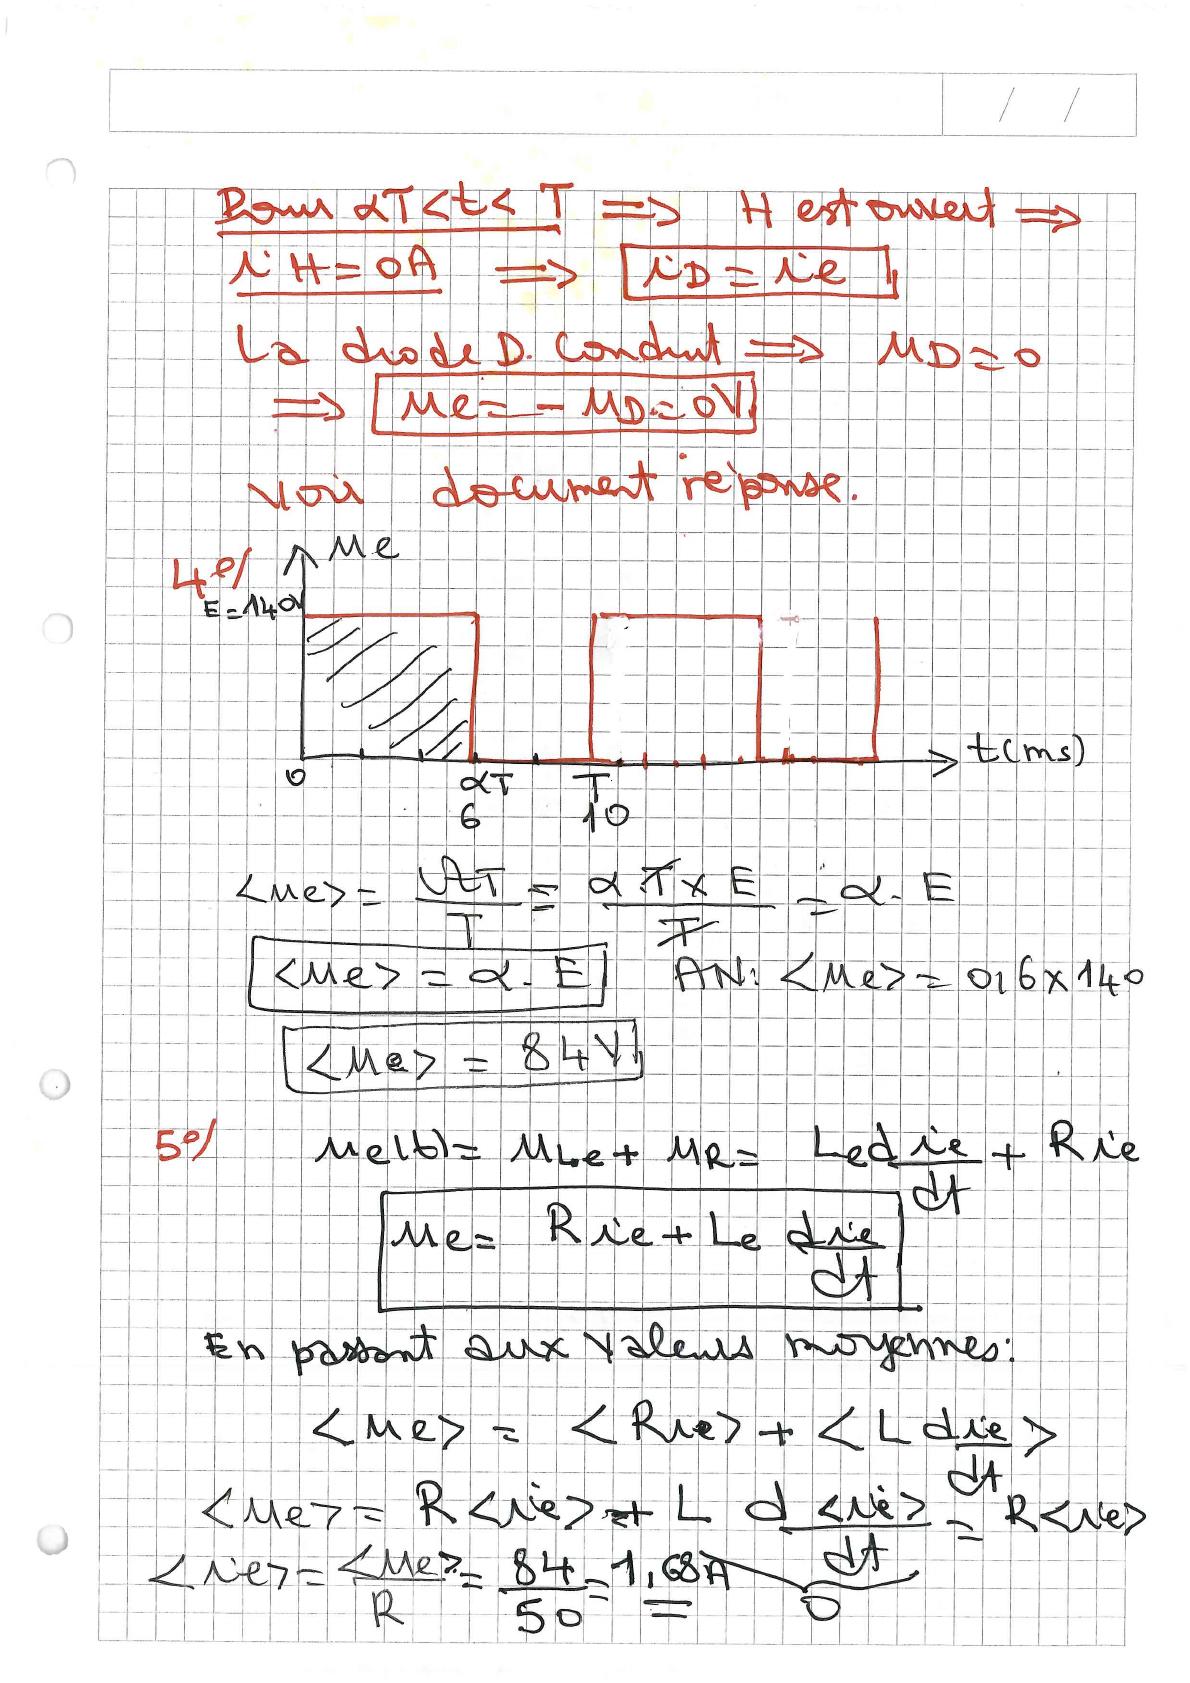 / /
Pour αT<t< T ⇒ H est ouvert ⇒
iH=0A ⇒ iD=ie
La diode D. Conduit ⇒ uD=0
⇒ ue=-uD=0V
Voir document réponse.
4°/ ue
E=140V
t(ms)
0 αT T
6 10
<ue>= = α T x E / T = α. E
<ue> = α. E AN: <ue> = 0,6x140
<ue> = 84V
5°/ ue(t)= uLe+ uR= Le die/dt + R ie
ue= R ie + Le die/dt
En passant aux valeurs moyennes:
<ue> = <Rie> + <L die/dt>
<ue> = R<ie> + L d<ie>/dt = R<ie>
<ie>= <ue>/R = 84/50 = 1,68A 0